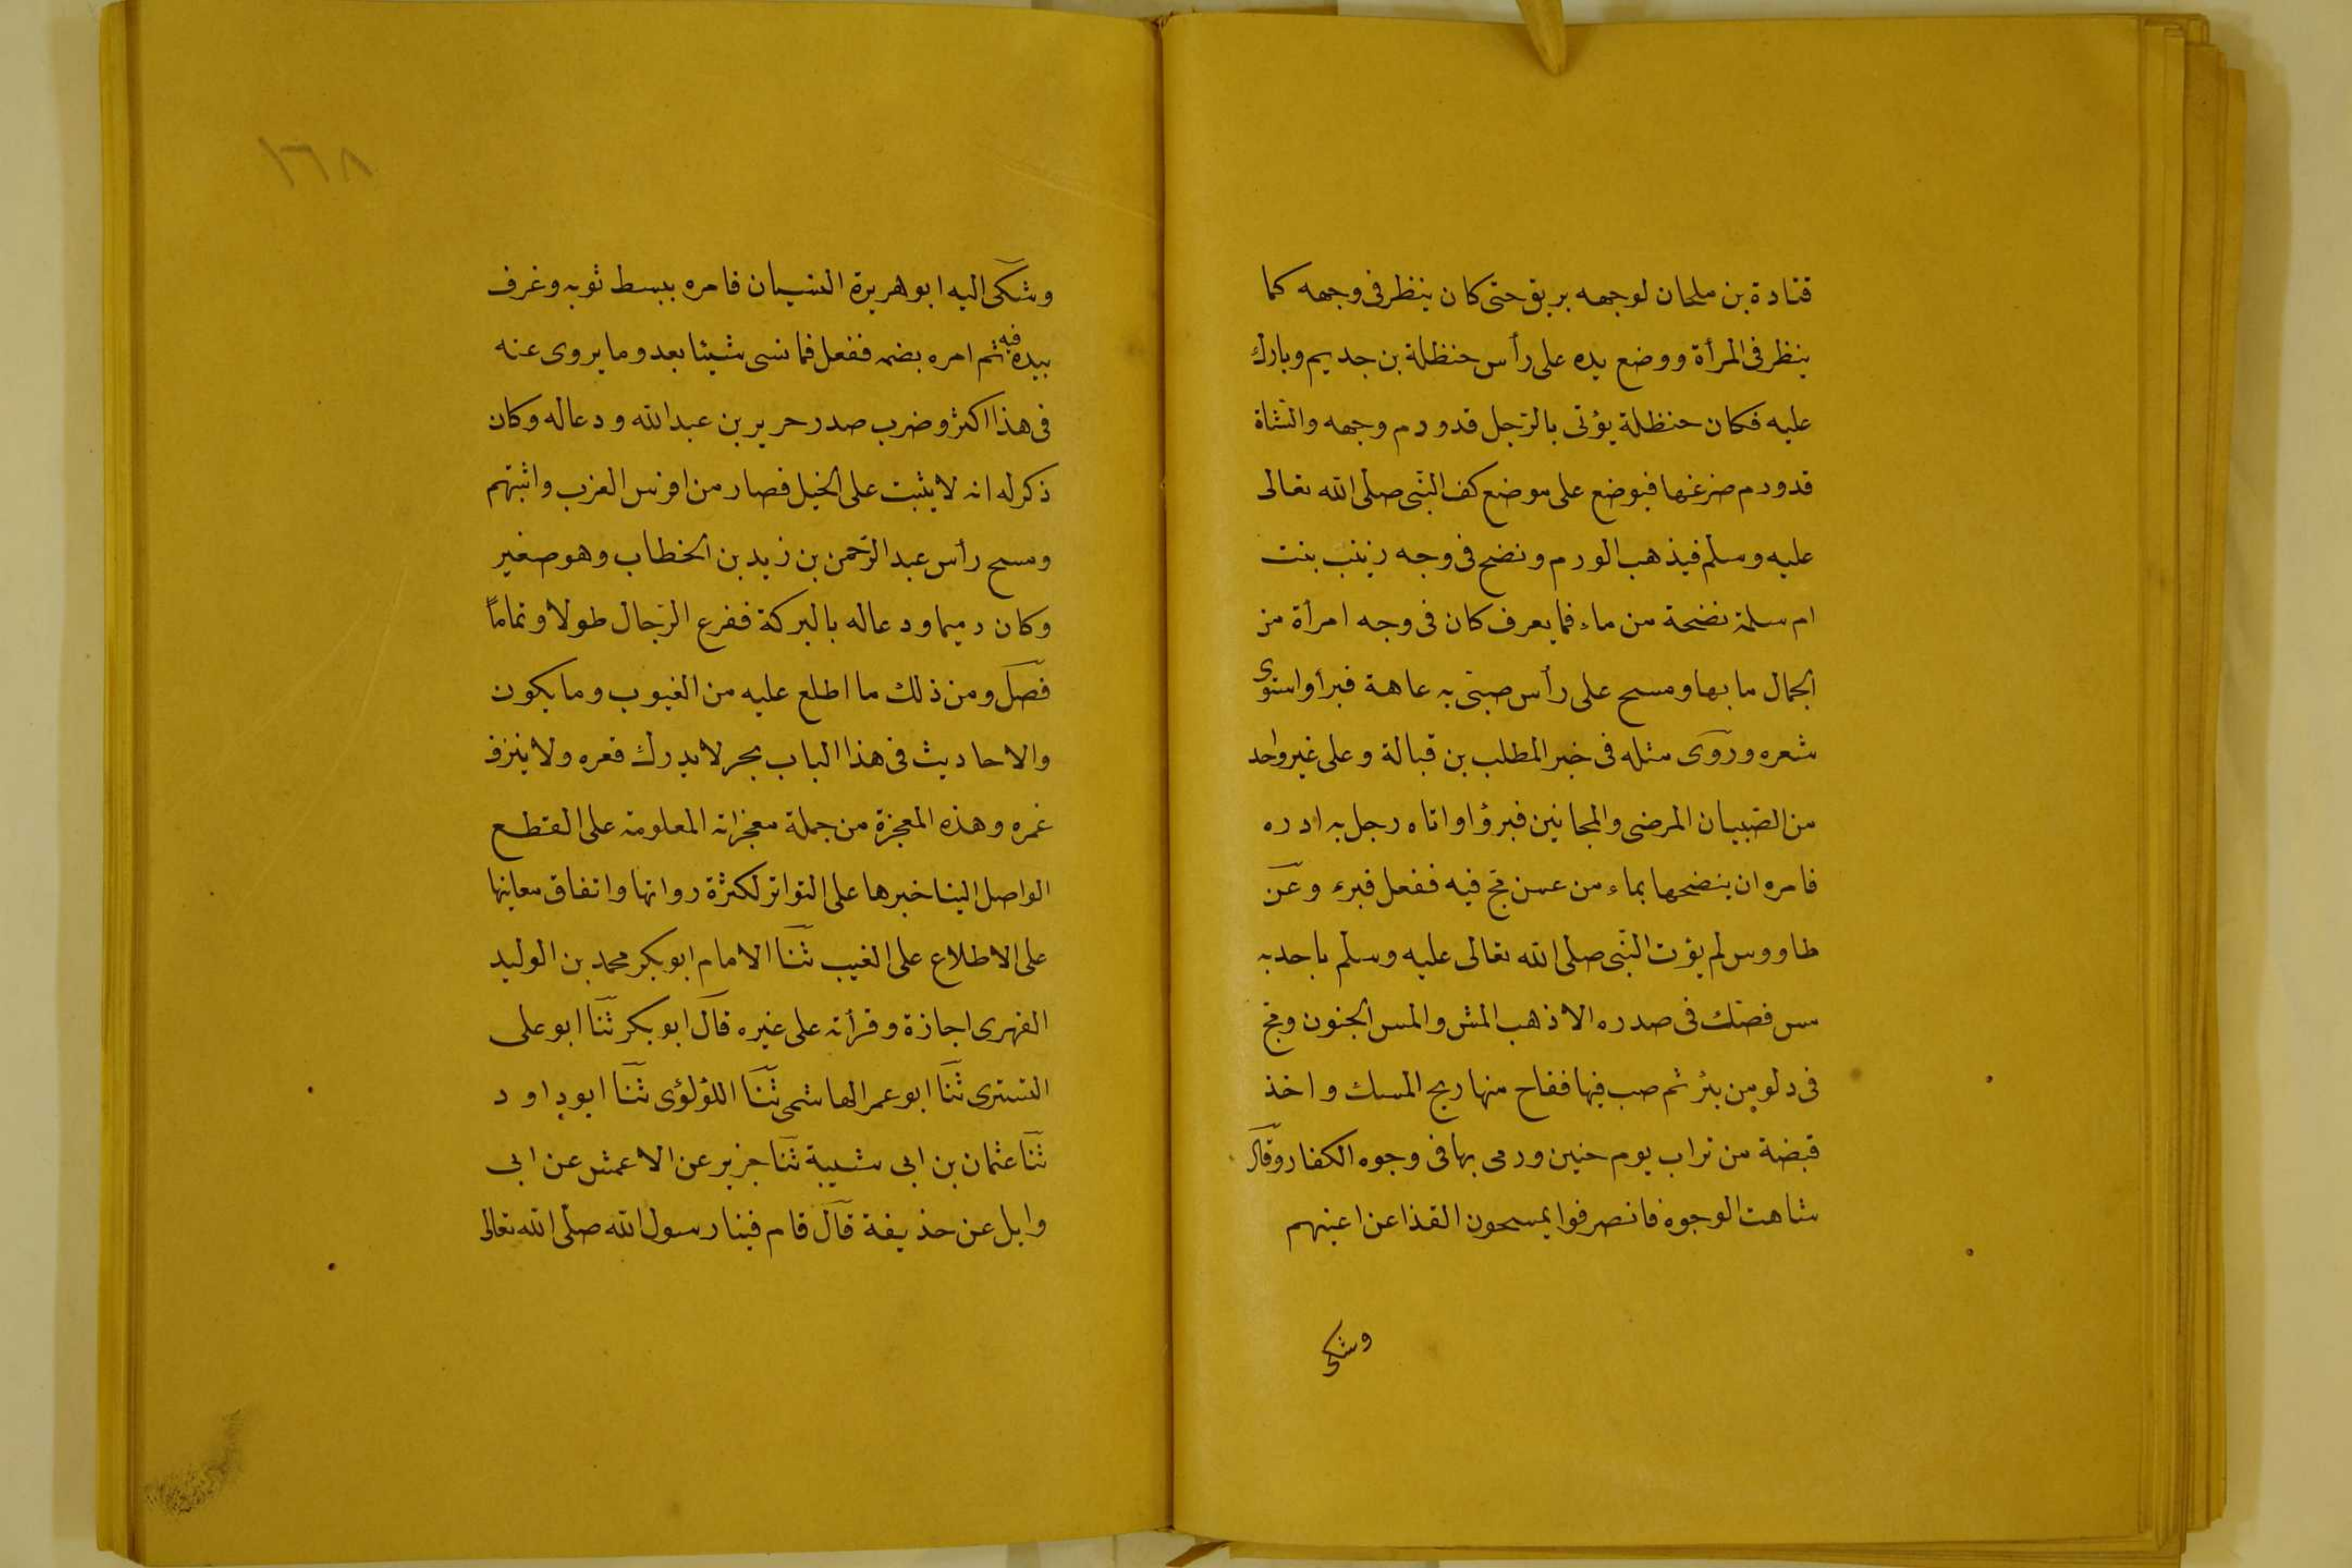 قتادة بن ملحان لوجهه بريق حتى كان ينظر فى وجهه كما
ينظر فى المرأة ووضع يده على رأس حنظلة بن جديم وبارك
عليه فكان حنظلة يؤتى بالرّجل قد ورم وجهه والشّاة
قد ورم ضرعها فيوضع على موضع كف النّبى صلى الله تعالى
عليه وسلم فيذهب الورم ونضح فى وجه زينب بنت
ام سلمة نضحة من ماء فما يعرف كان فى وجه امرأة من
الجمال ما بها ومسح على رأس صبىّ به عاهة فبرأ واستوى
شعره وروى مثله فى خبر المطلب بن قبالة وعلى غير واحد
من الصّبيان المرضى والمجانين فبرؤا واتاه رجل به ادره
فامره ان ينضحها بماء من عين مج فيه ففعل فبرء وعن
طاووس لم يؤت النّبى صلى الله تعالى عليه وسلم باحد به
مس فصك فى صدره الا ذهب المس والمس الجنون ومج
فى دلو من بئر ثم صب فيها ففاح منها ريح المسك واخذ
قبضة من تراب يوم حنين ورمى بها فى وجوه الكفار وقال
شاهت الوجوه فانصرفوا يمسحون القذا عن اعينهم
وشكى
١٦٨
وشكى اليه ابو هريرة النسيان فامره ببسط ثوبه وغرف
بيده فيه ثم امره بضمه ففعل فما نسى شيئا بعد وما يروى عنه
فى هذا اكثر وضرب صدر جرير بن عبد الله ودعا له وكان
ذكر له انه لا يثبت على الخيل فصار من افرس العرب واثبتهم
ومسح رأس عبد الرّحمن بن زيد بن الخطاب وهو صغير
وكان دميما ودعا له بالبركة ففرع الرّجال طولا وتماماً
فصل ومن ذلك ما اطلع عليه من الغيوب وما يكون
والاحاديث فى هذا الباب بحر لا يدرك قعره ولا ينزف
غمره وهذه المعجزة من جملة معجزاته المعلومة على القطع
الواصل الينا خبرها على التواتر لكثرة رواتها واتفاق معانيها
على الاطلاع على الغيب ثنا الامام ابو بكر محمد بن الوليد
الفهرى اجازة وقرأته على غيره قال ابو بكر ثنا ابو على
التسترى ثنا ابو عمر الهاشمى ثنا اللؤلؤى ثنا ابو داود
ثنا عثمان بن ابى شيبة ثنا جرير عن الاعمش عن ابى
وايل عن حذيفة قال قام فينا رسول الله صلّى الله تعالى